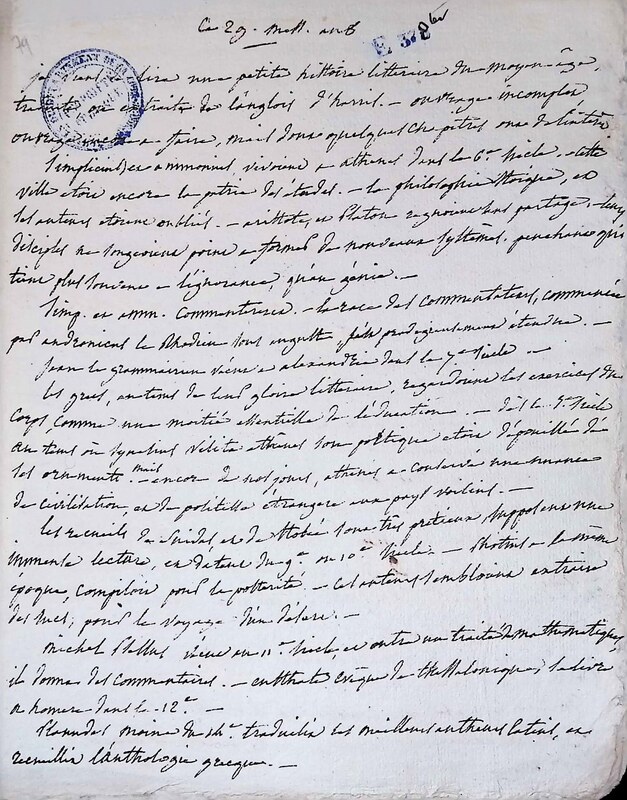 Ce 29. mess. an 8
E 378 bis
79
je viens de lire une petite histoire litteraire du moyen-âge,
traduite ou extraite de l'anglois d'harris. - ouvrage incomplet
ouvrage a faire, mais dont quelques chapitres ont de l'intérêt
Simplicius, et ammonius vivoient a athenes dans le 6e siecle. - cette
ville étoit encore la patrie des études. - la philosophie stoique, et
ses auteurs etoient oubliés. - aristote, et Platon regnoient sans partage, - leurs
disciples ne songeoient point a former de nouveaux systêmes, penchant qui
tient plus souvent a l'ignorance, qu'au génie. -
Simp. et amm. commenterent. - la race des commentateurs, commencée
par andronicus le Rhodien sous auguste, s'est prodigieusement étendue. -
Jean le grammairien vécut a alexandrie dans le 7e siecle -
les grecs, au tems de leur gloire litteraire, regardoient les exercices du
corps, comme une moitié essentielle de l'éducation. - dès le 5e siecle
au tems où synesius visita athenes son portique etoit dépouillé de
ses ornements. - mais encor de nos jours, athenes a conservé une nuance
de civilisation, et de politesse étrangere aux pays voisins. -
les recueils de suidas et de stobée sont très prétieux, supposent une
immense lecture, et datent du 9e ou 10e siecle. - Photius a la même
époque, compiloit pour la posterité. - ces auteurs sembloient extraire
des sucs, pour le voyage d'un désert. -
michel Psellus vécut au 11e siecle, et outre un traité de mathematiques,
il donna des commentaires. - eusthate évêque de thessalonique, se livra
a homere dans le 12e -
Planudes moine du 14e traduisit les meilleurs autheurs latins, et
recueillit l'anthologie grecque. -